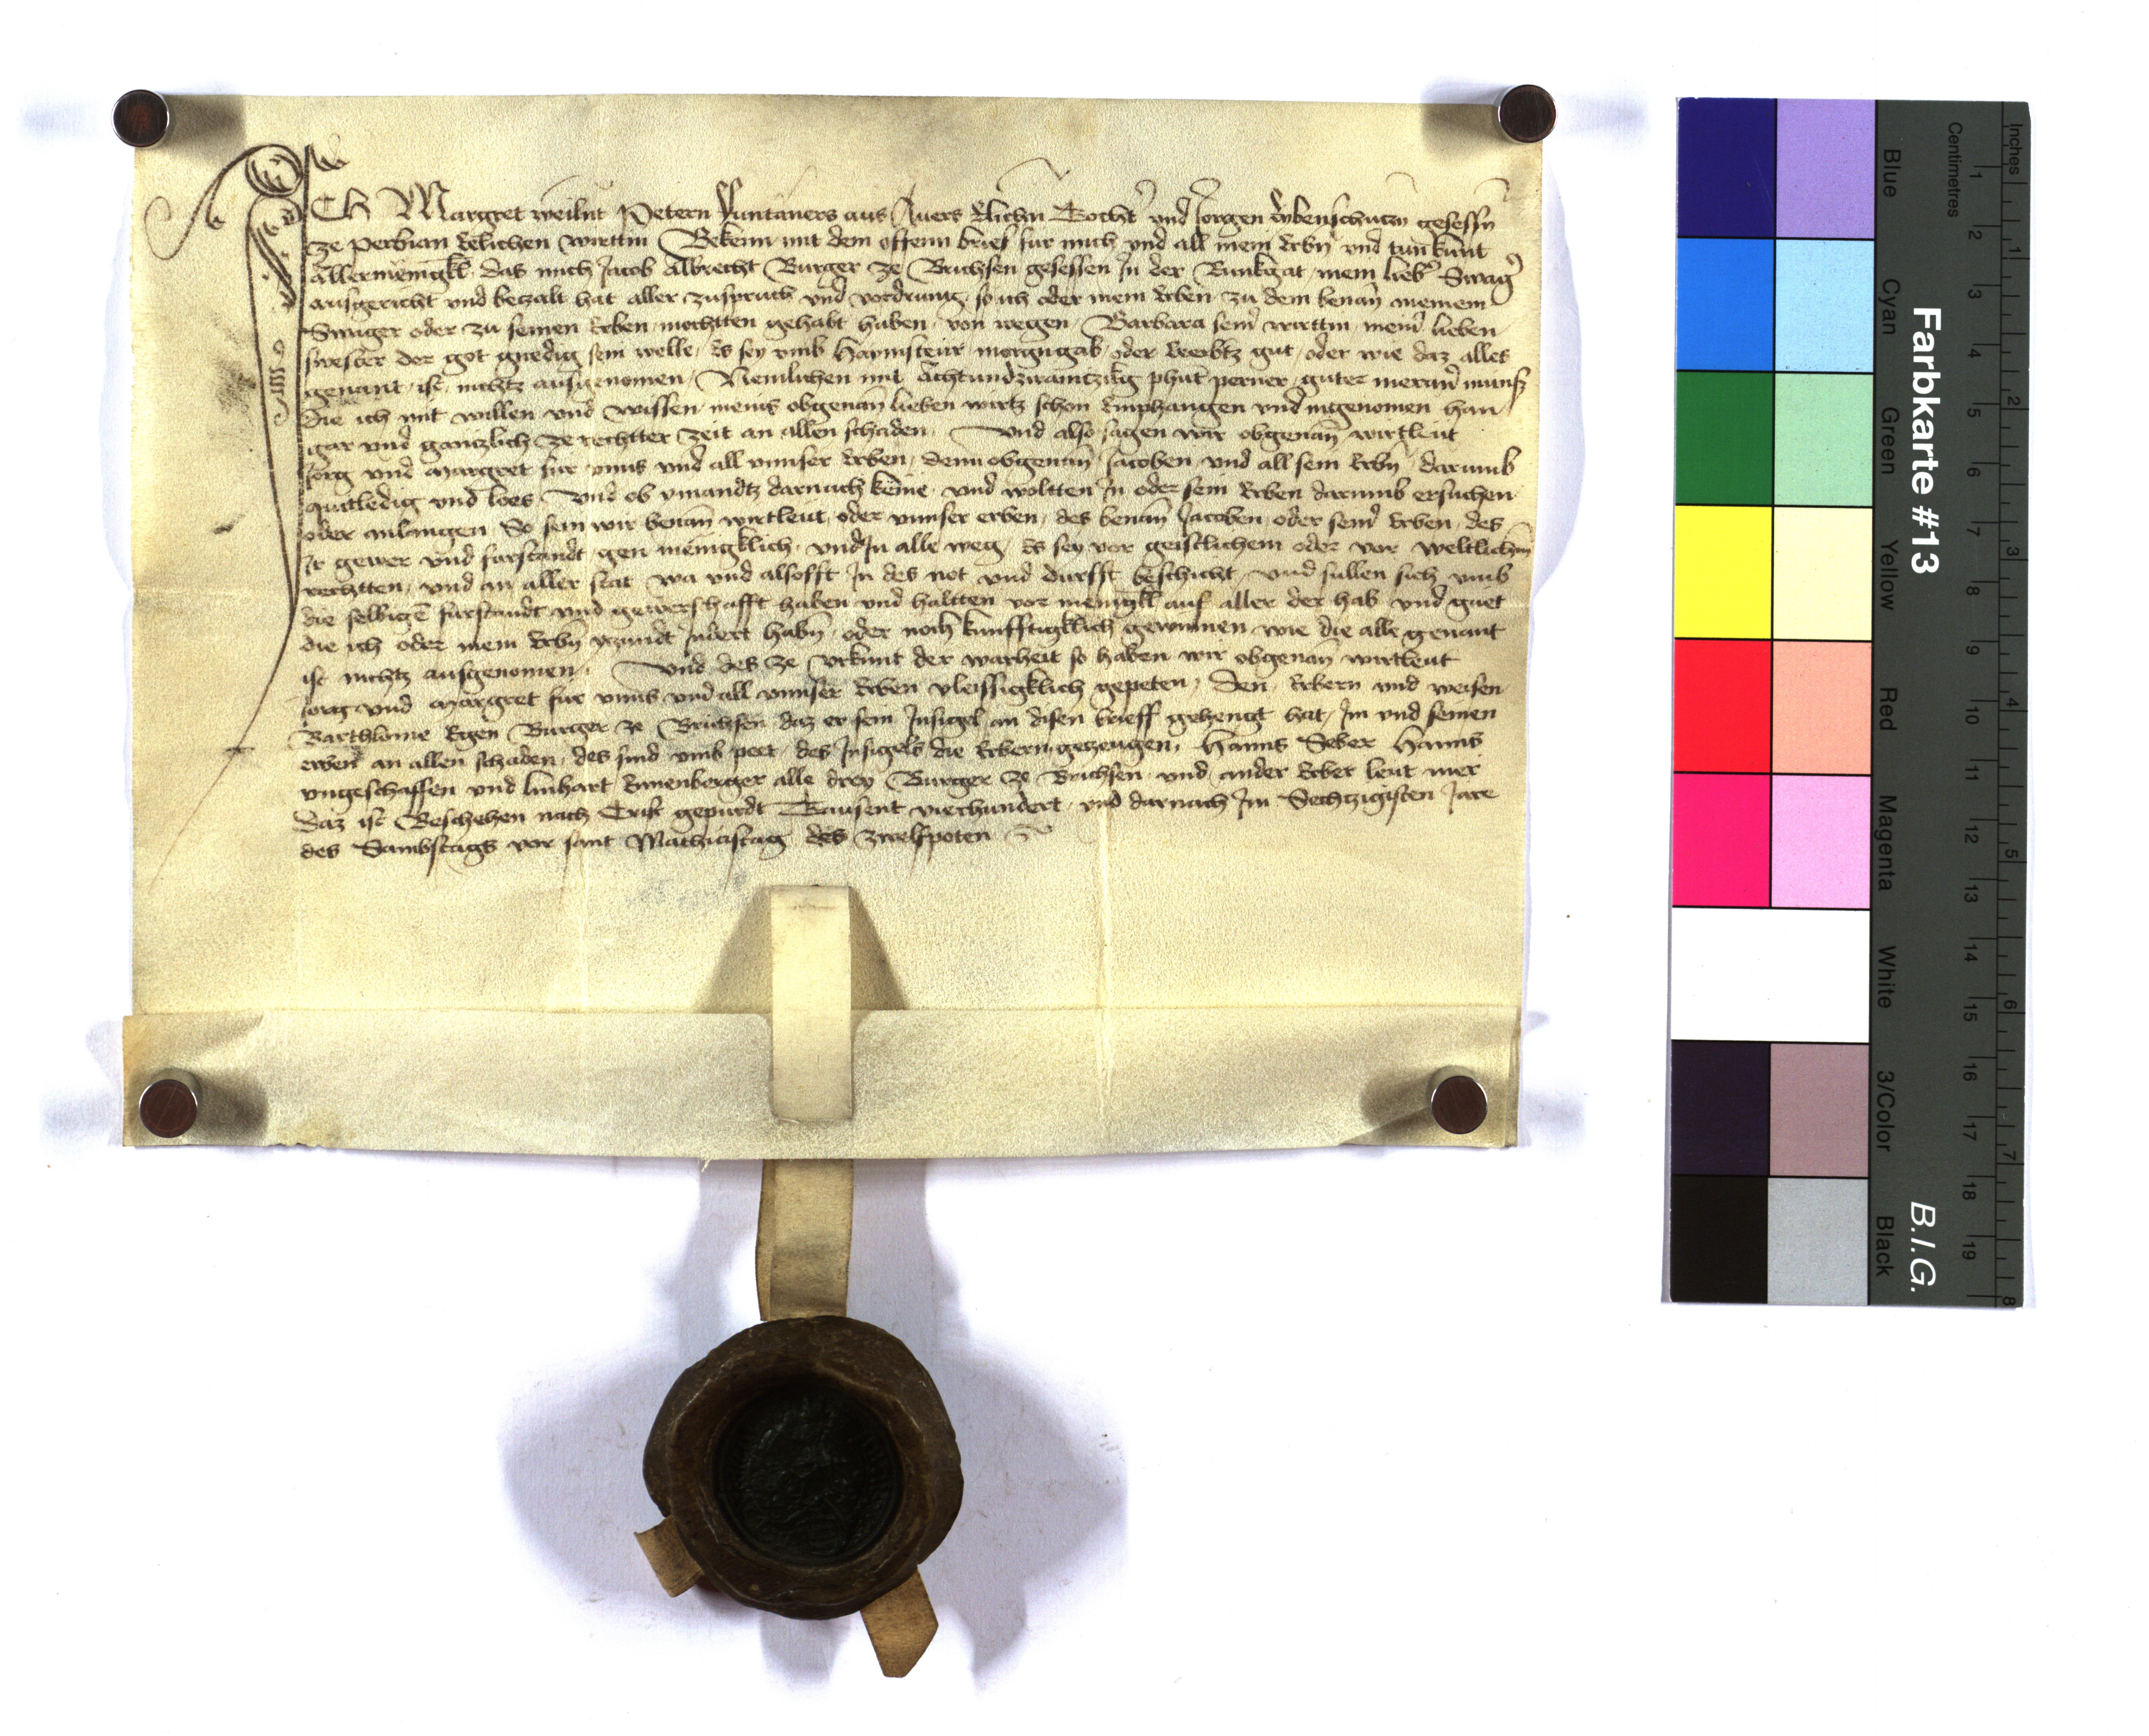 ICH Margret weilnt Petern Funtaners aus Auers Elichn Tocht' und Jorgen gesessn
ze perbian Eelichen wirttin Bekenn mit dem offenn brief fur mich und all mein Erbn und tun kunt
Allermenigkl das mich Jacob Albrecht Burger ze Brichsen gesessen In der Runkgat mein lieb' Swag'
ausgericht und betzalt hat aller zuspruch und vordrung so ich oder mein Erben zu dem benan meinem
Swager oder zu seinen Erben mochtten gehabt haben von wegen Barbara sein' wirttin mein' lieben
swester der got gnedig sein welle Es sey umb Haymsteur morgngab oder Veerbtz gut oder wie daz alles
genant ist nichtz ausgenomen Nemlichen mit Achtundzwaintzikg phut perner guter meran' munss
die ich mit willen und wissen meins obgenan lieben wirtz schon Emphangen und ingenomen han
gar und gantzlich ze rechtter zeit an allen schaden Und also sagen wir obgenan wirtleut
Jorg und Margret fur unns und all unnser Erben denn obgenan Jacoben und all sein Erbn darumb
quitledig und loes Und ob ymandtz darnach keme und woltten In oder sein Erben darumb ersuchen
oder anlangen So sein wir benan wirtleut oder unnser erben des benan Jacoben oder sein' Erben des
Ir gewer und furstandt gen menigklich und In alle weg Es sey vor geistlichem oder vor weltlichem
rechtten und an aller stat wa und alsofft In des not und durfft beschicht und sullen sich umb
die selbigen furstandt und gewerschafft haben und haltten vor menigkl auf aller der hab und guet
die ich oder mein Erbn yezundt Indert habn oder noch kunfftigklich gewinnen wie die alle genant
ist nichtz ausgenomen Und des ze Urkunt der warheit so haben wir obgenan wirtleut
Jorg und Margret fur unns und all unnser Erben vleissigklich gepeten Den Erbern und weisen
Barthlome Egen Burger ze Brichsen daz er sein Insigel an disen brieff gehengt hat Im und seinen
erben an allen schaden des sind umb peet des Insigels die Erbern gezeugen Hanns Seber Hanns
ungeschaffen und linhart Ennenberger alle drey Burger ze Brichsen und ander Erber leut mer
Daz ist Beschehen nach Crist gepurdt Tausent vierhundert und darnach Im Sechtzigisten Jare
des Sambstags vor sant Mathiastag des zwelfpoten
Farbkarte #13
B.I.G.
Inches
1 2 3 4 5 6 7 8
Centimetres
1 2 3 4 5 6 7 8 9 10 11 12 13 14 15 16 17 18 19
Blue
Cyan
Green
Yellow
Red
Magenta
White
3/Color
Black